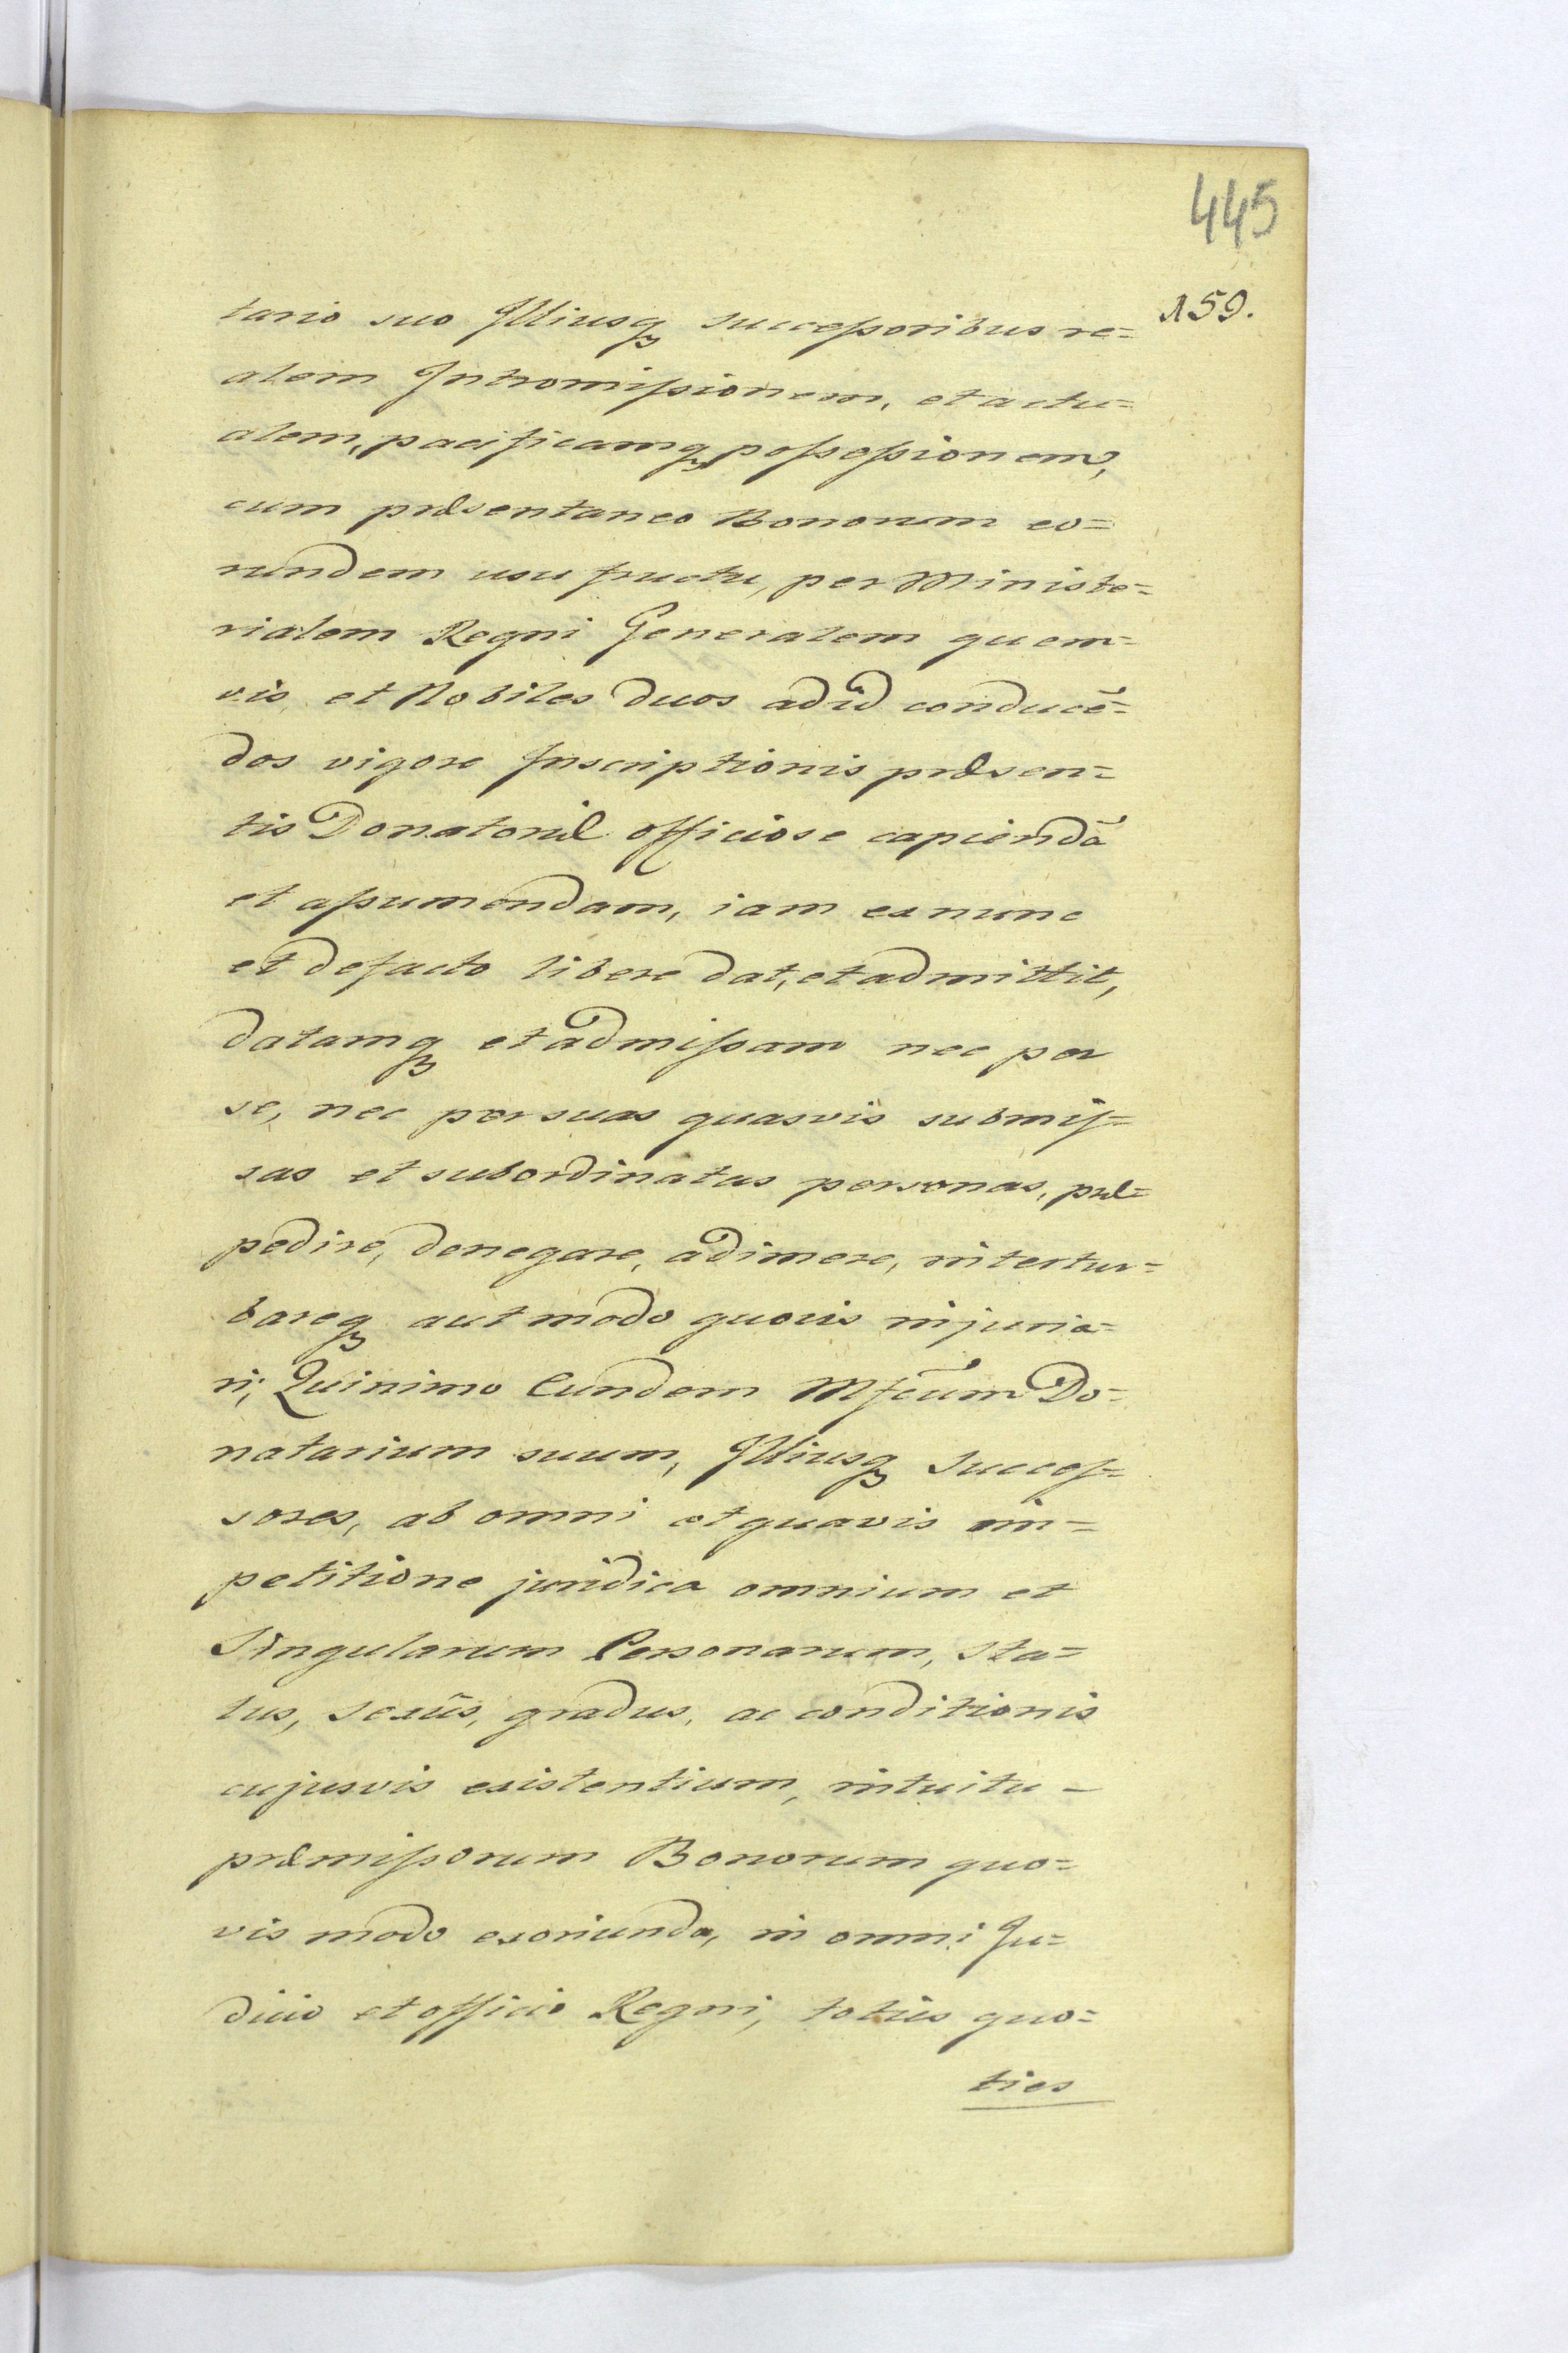 445
159.
tario suo Illiusq successoribus re=
alem Intromissionem, et actu=
alem, pacificamq possessionem,
cum præsentaneo Bonorum eo=
rundem usu fructu, per Ministe=
rialem Regni Generalem quem=
vis et Nobiles duos ad id conducē=
dos vigore Inscriptionis præsen=
tis Donatoriæ officiose capiendā
et assumendam, iam ex nunc
et de facto libere dat, et admittit,
datamq et admissam nec per
se, nec per suas quasvis submis=
sas et subordinatas personas, præ=
pedire, denegare, adimere, intertur=
bareq aut modo quovis injuria=
ri; Quinimo Eundem Mfcūm Do=
natarium suum, Illiusq Succes=
sores, ab omni et quavis im=
petitione juridica omnium et
Singularum Personarum, Sta=
tus, sexūs, gradus, ac conditionis
cujusvis existentium, intuitu -
præmissorum Bonorum quo=
vis modo exoriunda, in omni Ju=
dicio et officio Regni, toties quo=
ties